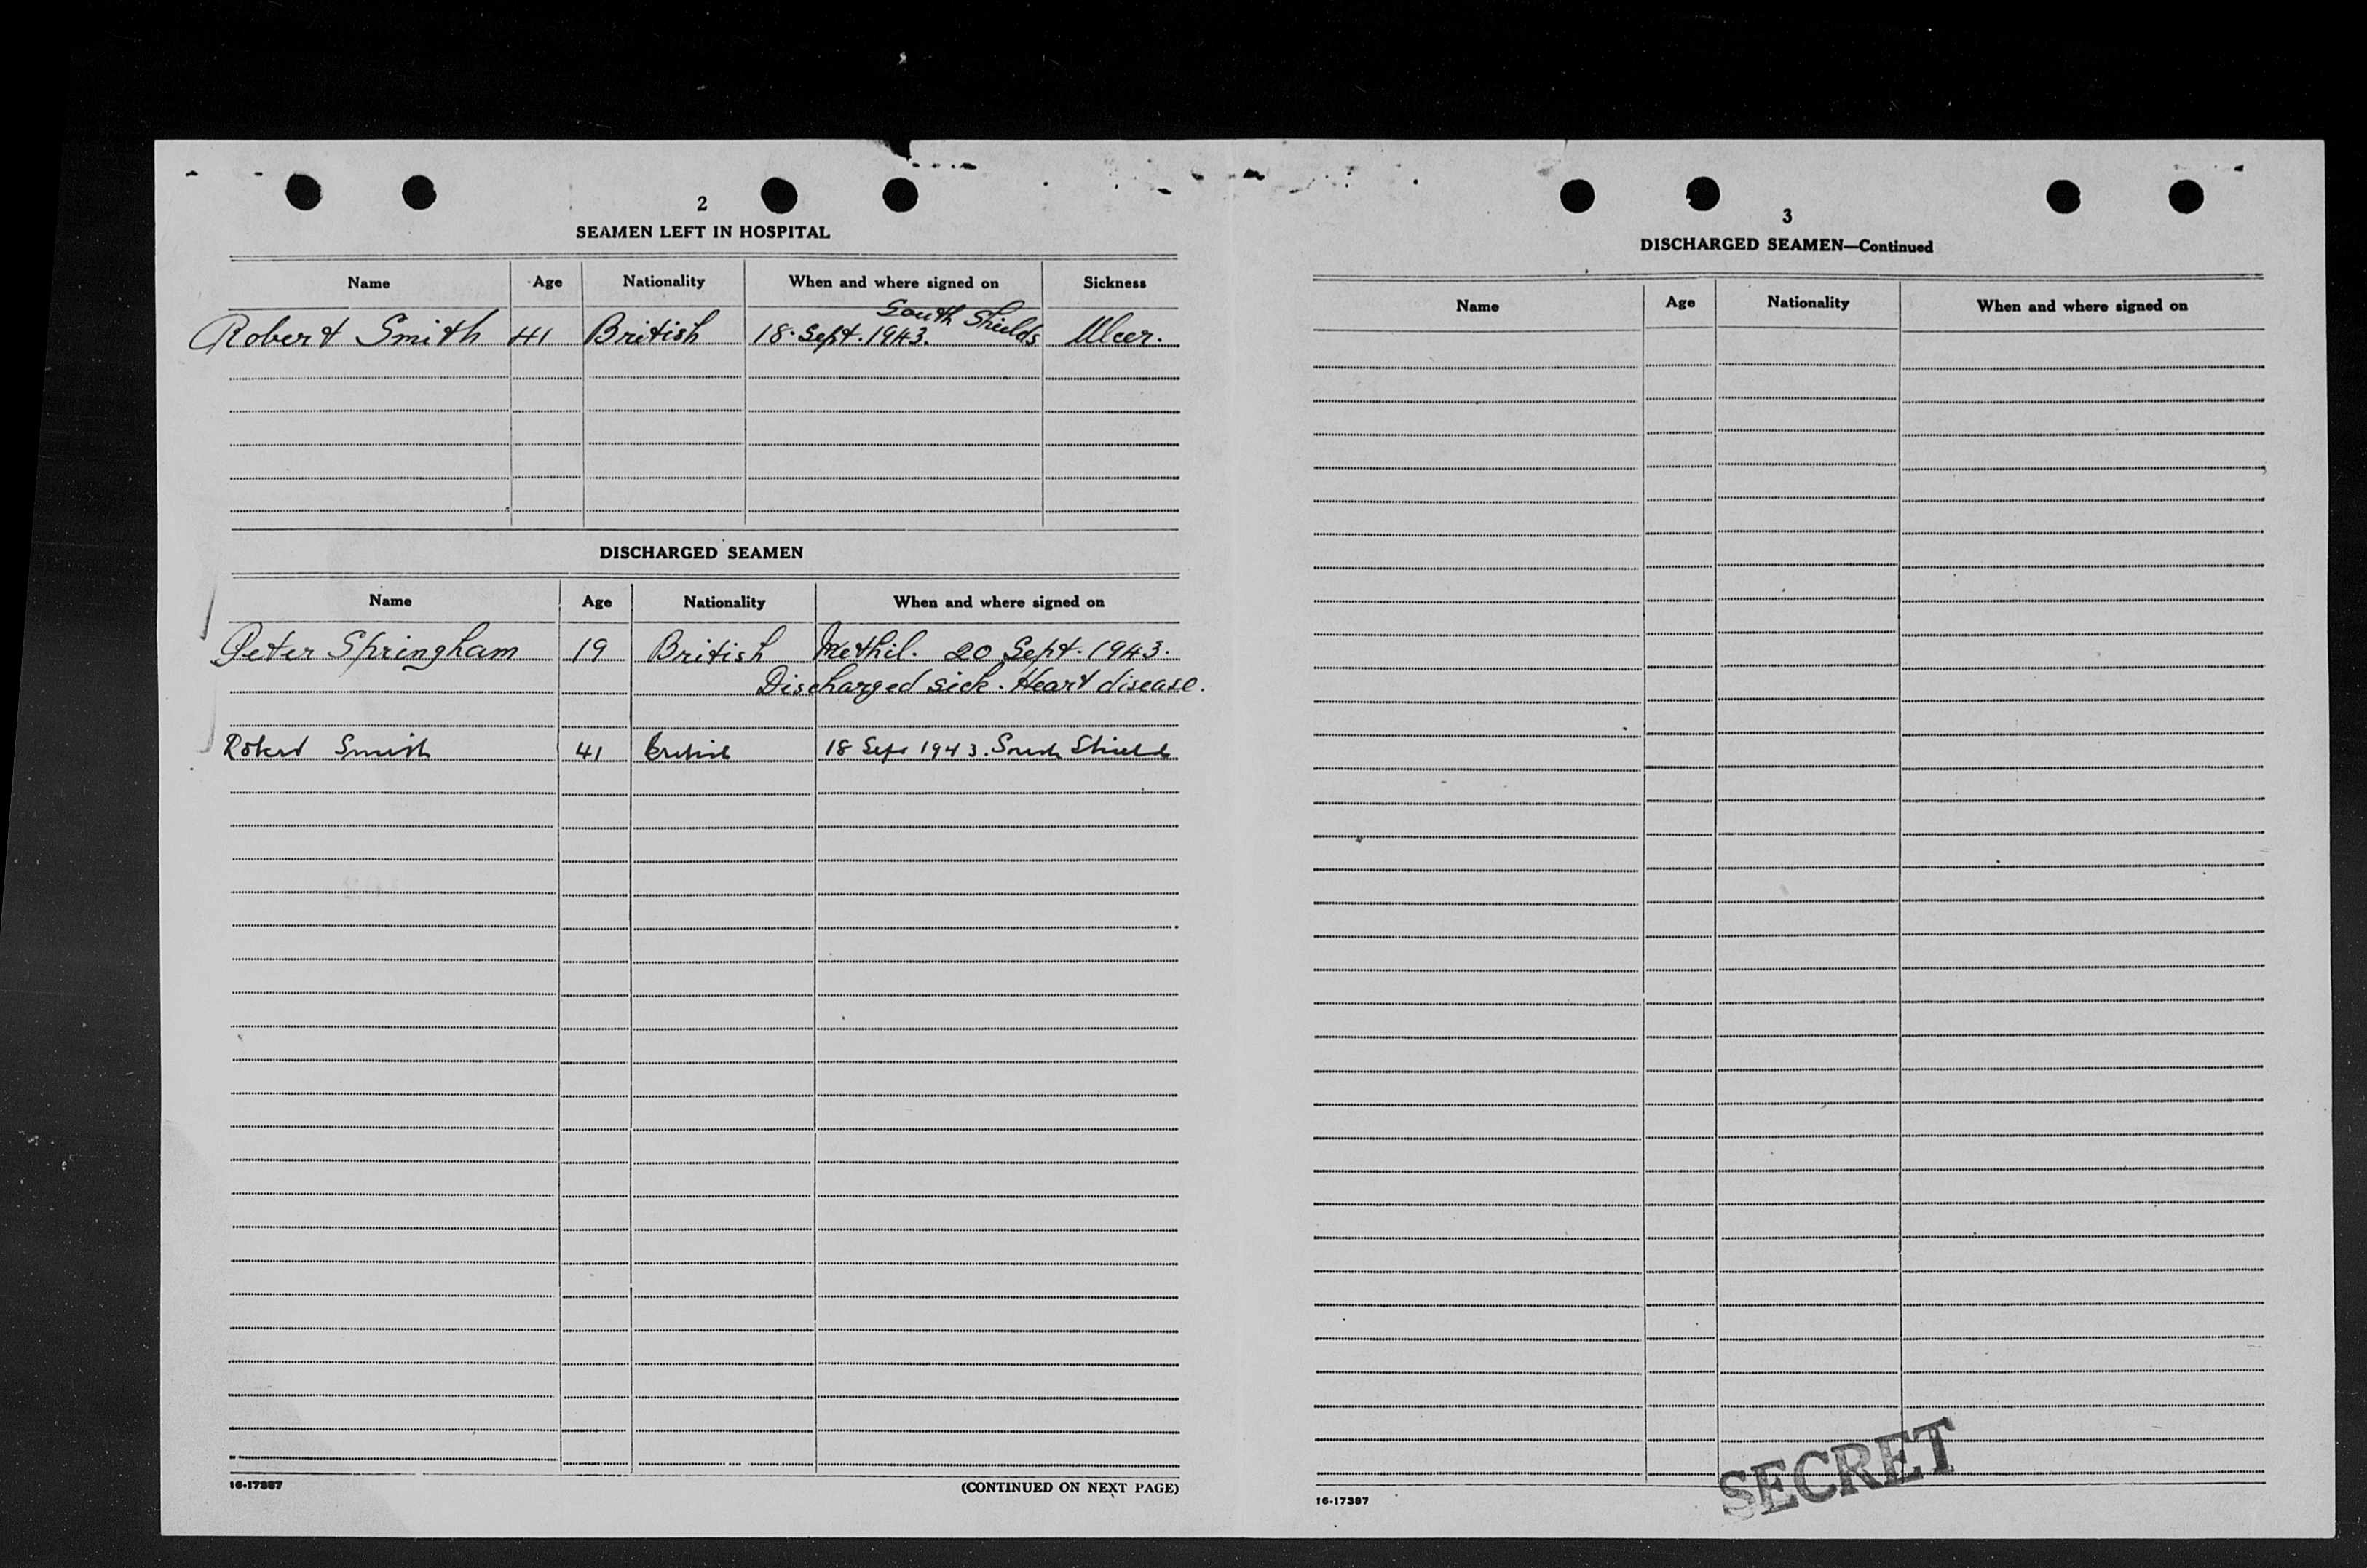 2
SEAMEN LEFT IN HOSPITAL
Name Age Nationality When and where signed on Sickness
South Shields
Robert Smith 41 British 18. Sept. 1943. Ulcer.
DISCHARGED SEAMEN
Name Age Nationality When and where signed on
Peter Springham 19 British Methil. 20 Sept. 1943.
Discharged sick. Heart disease.
Robert Smith 41 British 18 Sept 1943. South Shields
16-17387
(CONTINUED ON NEXT PAGE)
3
DISCHARGED SEAMEN—Continued
Name Age Nationality When and where signed on
SECRET
16-17387